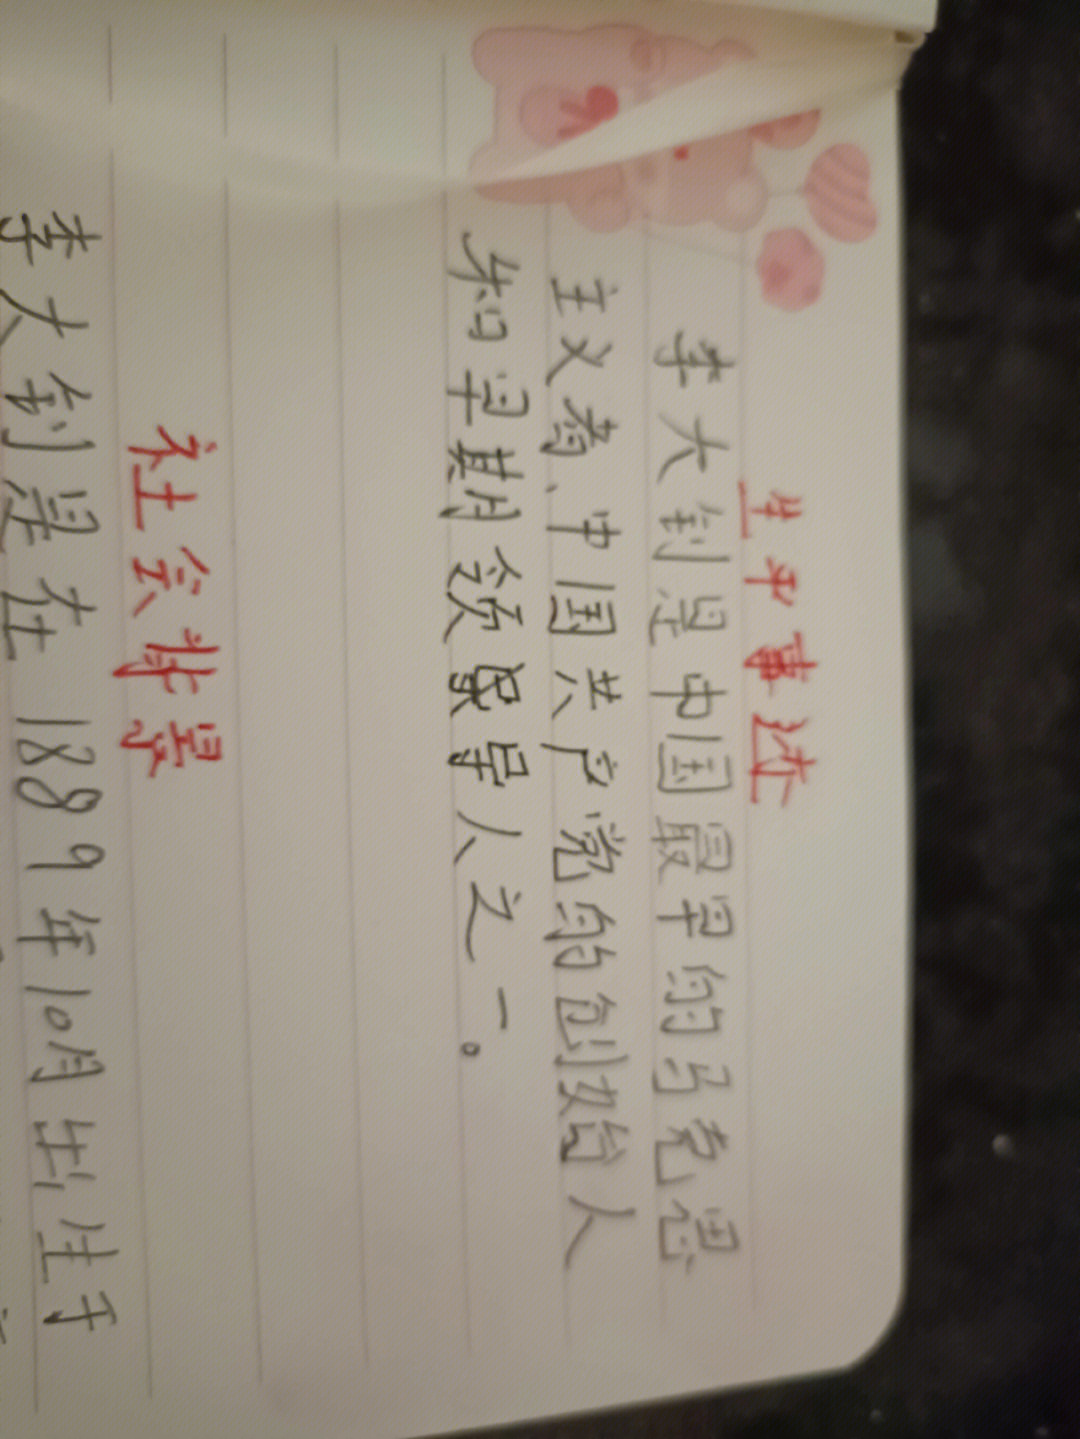 生平事迹
李大钊是中国最早的马克思
主义者、中国共产党的创始人
和早期领导人之一。
社会背景
李大钊是在1889年10月出生于